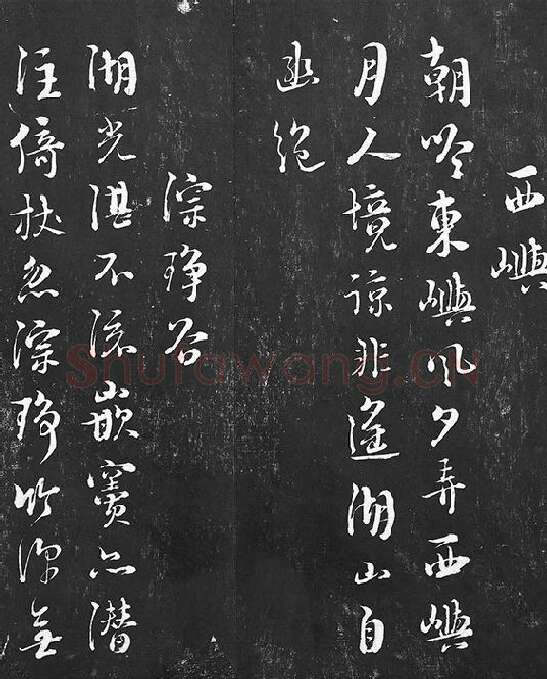 西嶼
朝吟東嶼風夕弄西嶼
月人境諒非遥湖山自
幽絕
淙琤谷
湖光湛不流嵌竇亦潛
注倚杖忽淙琤竹深無
Shufawang.CN